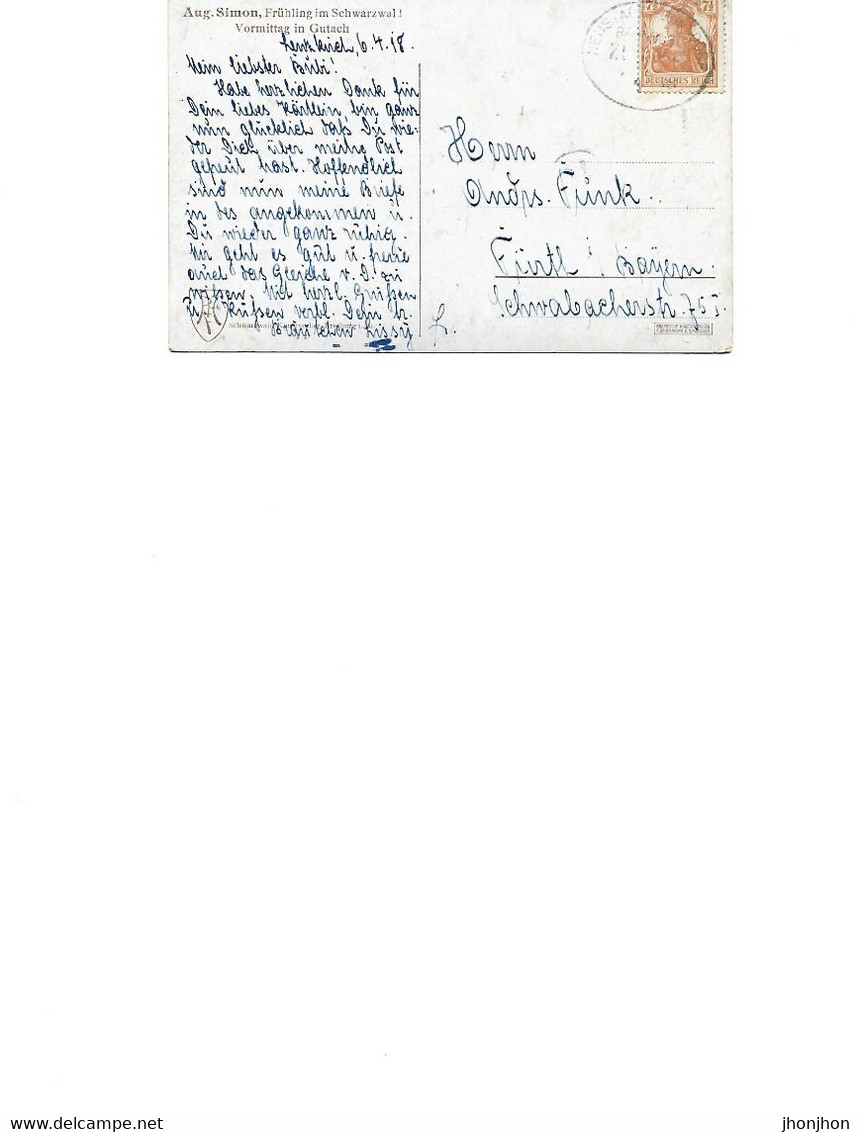 Aug. Simon, Frühling im Schwarzwald
Vormittag in Gutach
Lenzkirch, 6.4.18.
Mein liebster Bubi!
Habe herzlichen Dank für
Dein liebes Kärtlein, bin ganz
nun glücklich daß Du wie-
der Dich über meine Post
gefreut hast. Hoffendlich
sind nun meine Briefe
in des angekommen u.
Du wieder ganz ruhig.
Mir geht es gut u. freue
auch das Gleiche v. D. zu
wissen. Mit herzl. Grüßen
u. Küßen verbl. Dein br.
Bräutchen Lissy
NEUSTADT
7½ 7½
DEUTSCHES REICH
Herrn
Andrs. Funk.
Fürth i. Bayern.
Schwabacherstr. 75 I.
L.
delcampe.net
jhonjhon